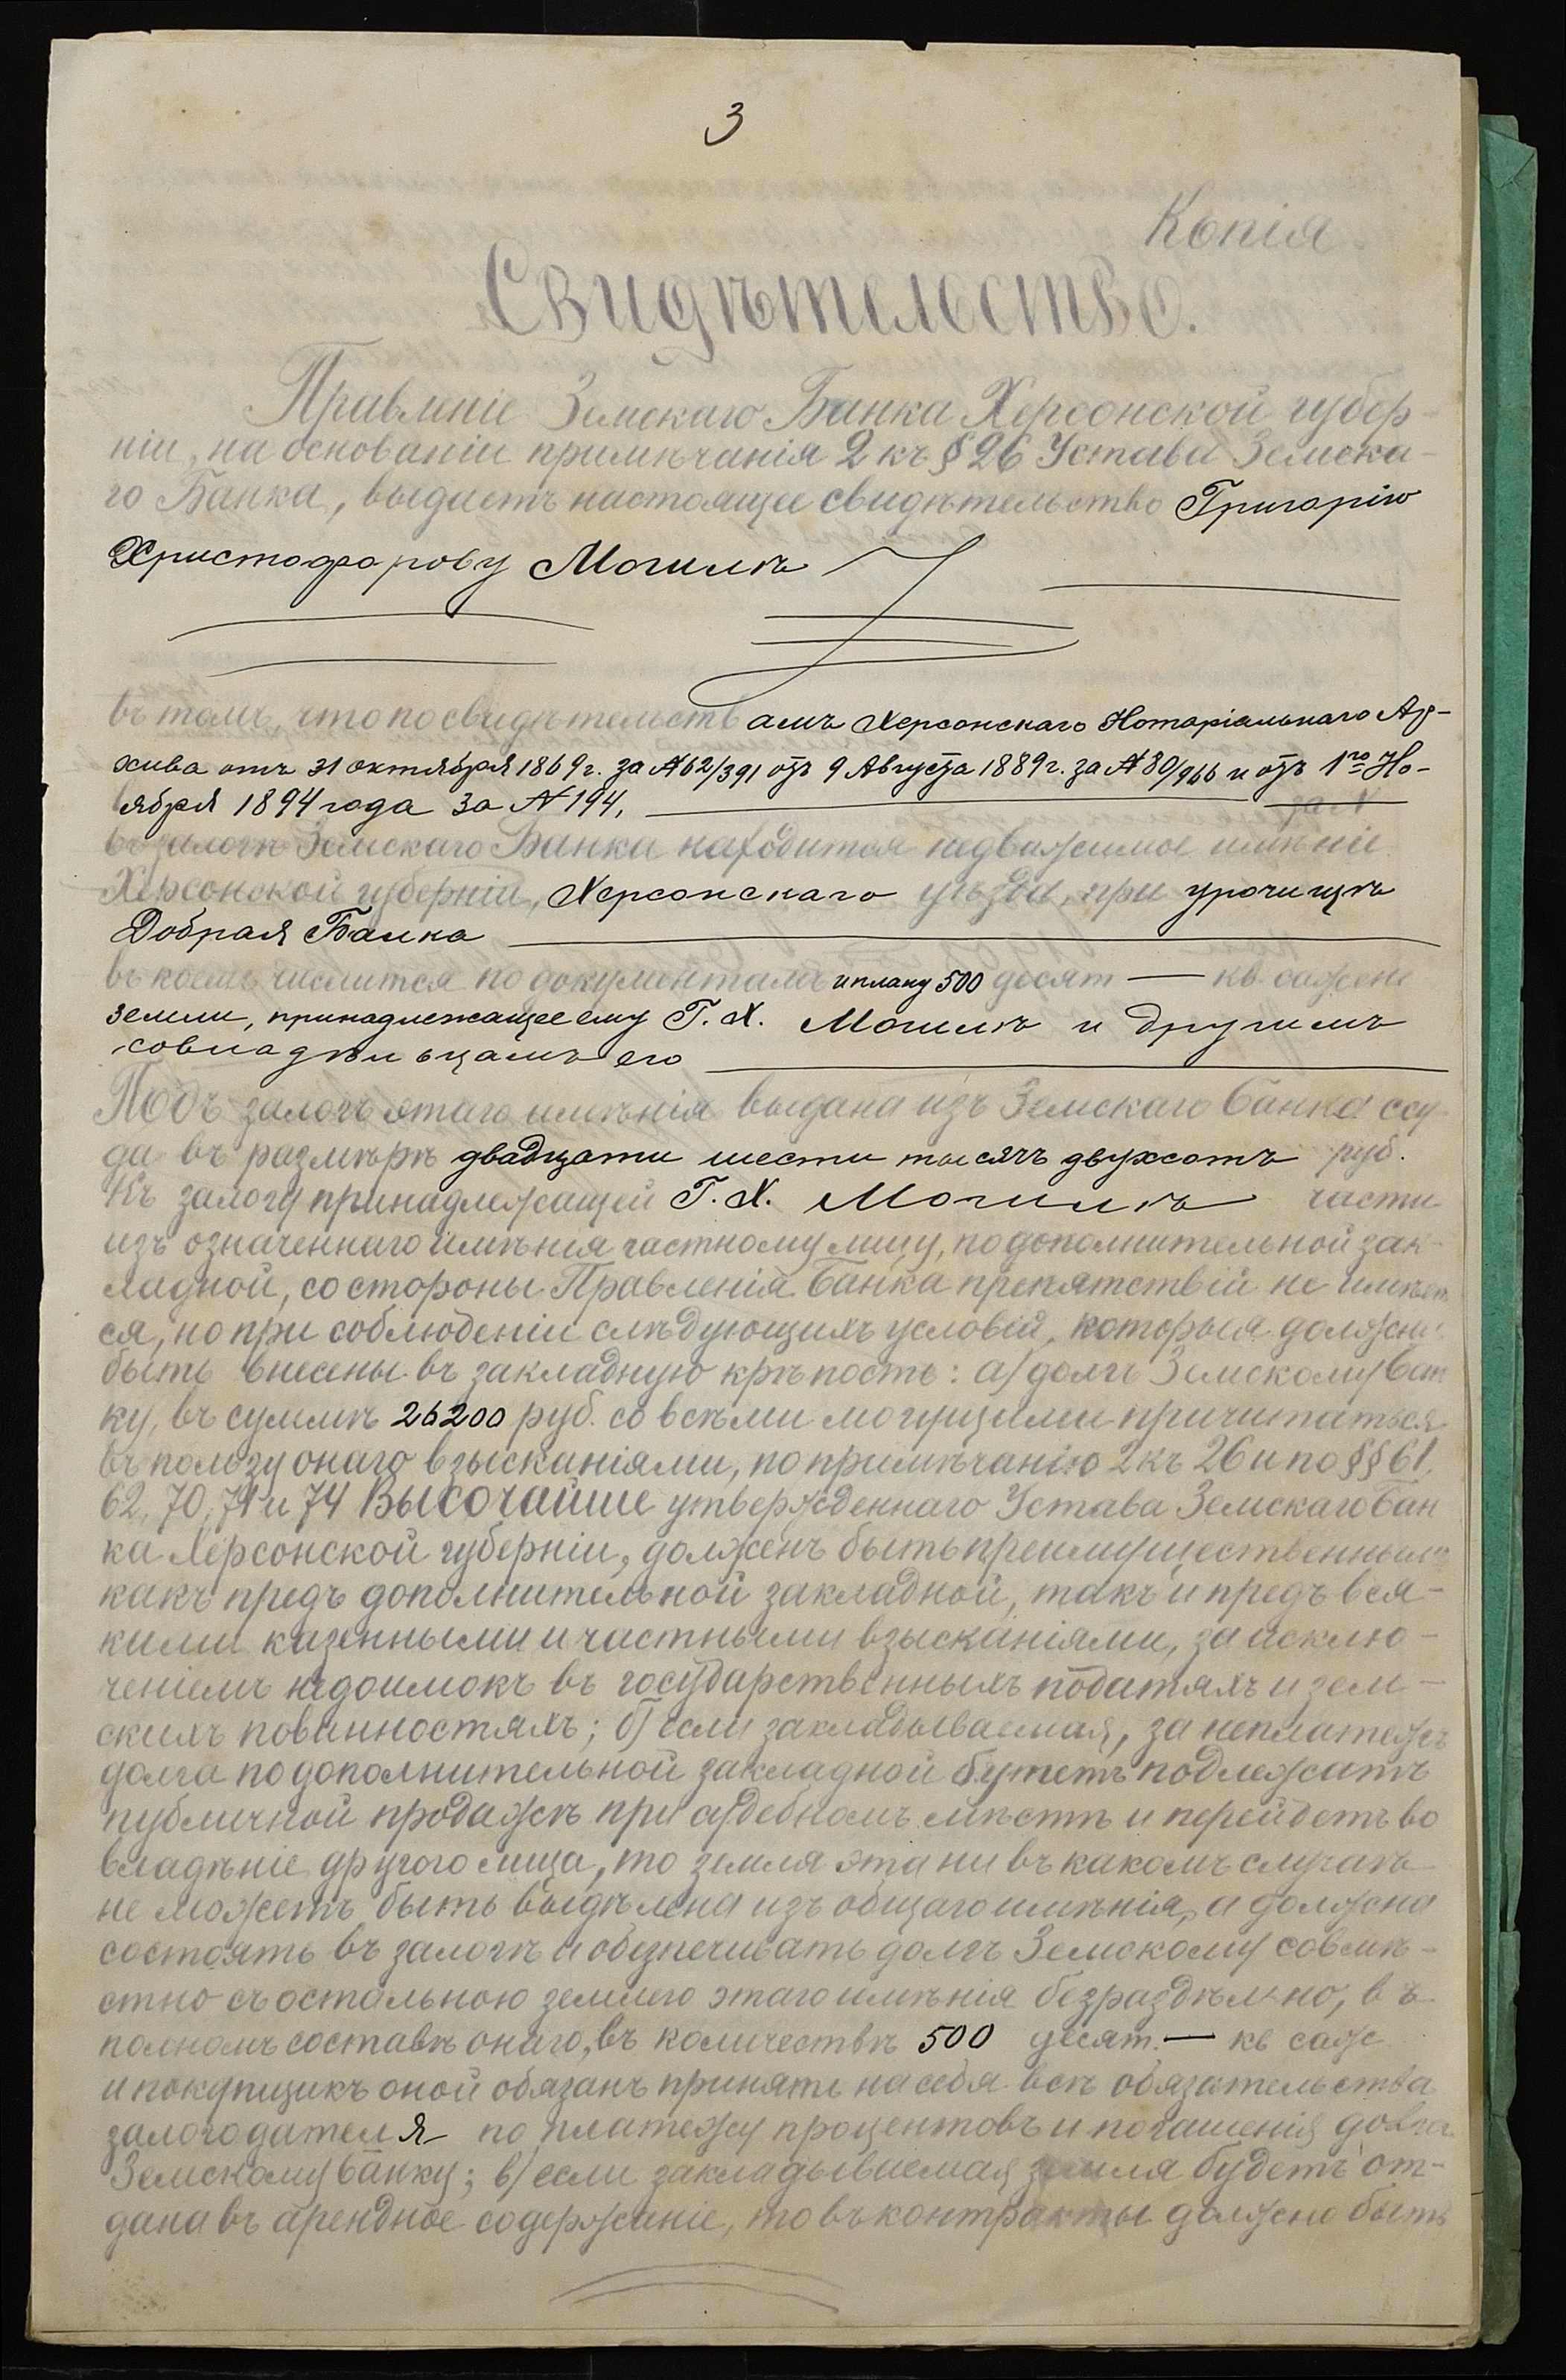 3
Копія
Свидѣтельство.
Правленіе Земскаго Банка Херсонской губер-
ніи, на основаніи примѣчанія 2 къ § 26 Устава Земска-
го Банка, выдаетъ настоящее свидѣтельство Григорію
Христофорову Могилѣ
въ томъ, что по свидѣтельствамъ Херсонскаго Нотаріальнаго Ар-
хива отъ 31 октября 1869 г. за № 62/391 отъ 9 Августа 1889 г. за № 80/966 и отъ 1го Но-
ября 1894 года за № 194, за №
въ залогѣ Земскаго Банка находится недвижимое имѣніе
Херсонской губерніи, Херсонскаго уѣзда, при урочищѣ
Добрая Балка
въ коемъ числится по документамъ и плану 500 десят — кв. сажень
земли, принадлежащее ему Г. Х. Могилѣ и другимъ
совладѣльцамъ его
Подъ залогъ этаго имѣнія выдана изъ Земскаго банка ссу-
да въ размѣрѣ двадцати шести тысячъ двухсотъ руб.
Къ залогу принадлежащей Г. Х. Могилѣ части
изъ означеннаго имѣнія частному лицу, по дополнительной зак-
ладной, со стороны Правленія банка препятствій не имѣет
ся, но при соблюденіи слѣдующихъ условій, которыя должны
быть внесены въ закладную крѣпость: а) долгъ Земскому Бан
ку, въ суммѣ 26200 руб. со всѣми могущими причитаться
въ пользу онаго взысканіями, по примѣчанію 2 къ 26 и по §§ 61,
62, 70, 71 и 74 Высочайше утвержденнаго Устава Земскаго Бан
ка Херсонской губерніи, долженъ быть преимущественнымъ
какъ предъ дополнительной закладной, такъ и предъ вся-
кими казенными и частными взысканіями, за исклю-
ченіемъ недоимокъ въ государственныхъ податяхъ и зем-
скихъ повинностяхъ; б) если закладываемая, за неплатежъ
долга по дополнительной закладной будетъ подлежать
публичной продажѣ при судебномъ мѣстѣ и перейдетъ во
владѣніе другого лица, то земля эта ни въ какомъ случаѣ
не можетъ быть выдѣлена изъ общаго имѣнія, а должна
состоять въ залогѣ и обезпечивать долгъ Земскому совмѣ-
стно съ остальною землею этаго имѣнія безраздѣльно, въ
полномъ составѣ онаго, въ количествѣ 500 десят. — кв саж
и покупщикъ оной обязанъ принять на себя всѣ обязательства
залогодателя по платежу процентовъ и погашенія долга
Земскому банку; в) если закладываемая земля будетъ от-
дана въ арендное содержаніе, то въ контракты должно быть